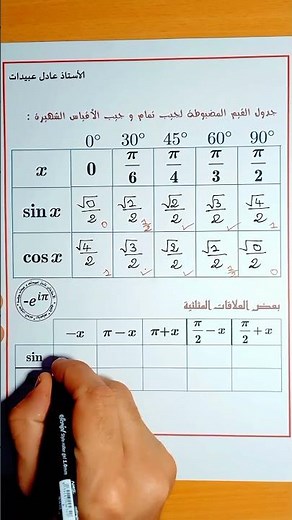 الأستاذ عادل عبيدات
جدول القيم المضبوطة لجيب تمام و جيب الأقياس الشهيرة :
0° 30° 45° 60° 90°
x 0 π/6 π/4 π/3 π/2
sin x √0/2 0 √1/2 1/2 √2/2 √3/2 √4/2 1
cos x √4/2 1 √3/2 √2/2 √1/2 1/2 √0/2 0
-e^iπ
بعض العلاقات المثلثية
-x π-x π+x π/2-x π/2+x
sin